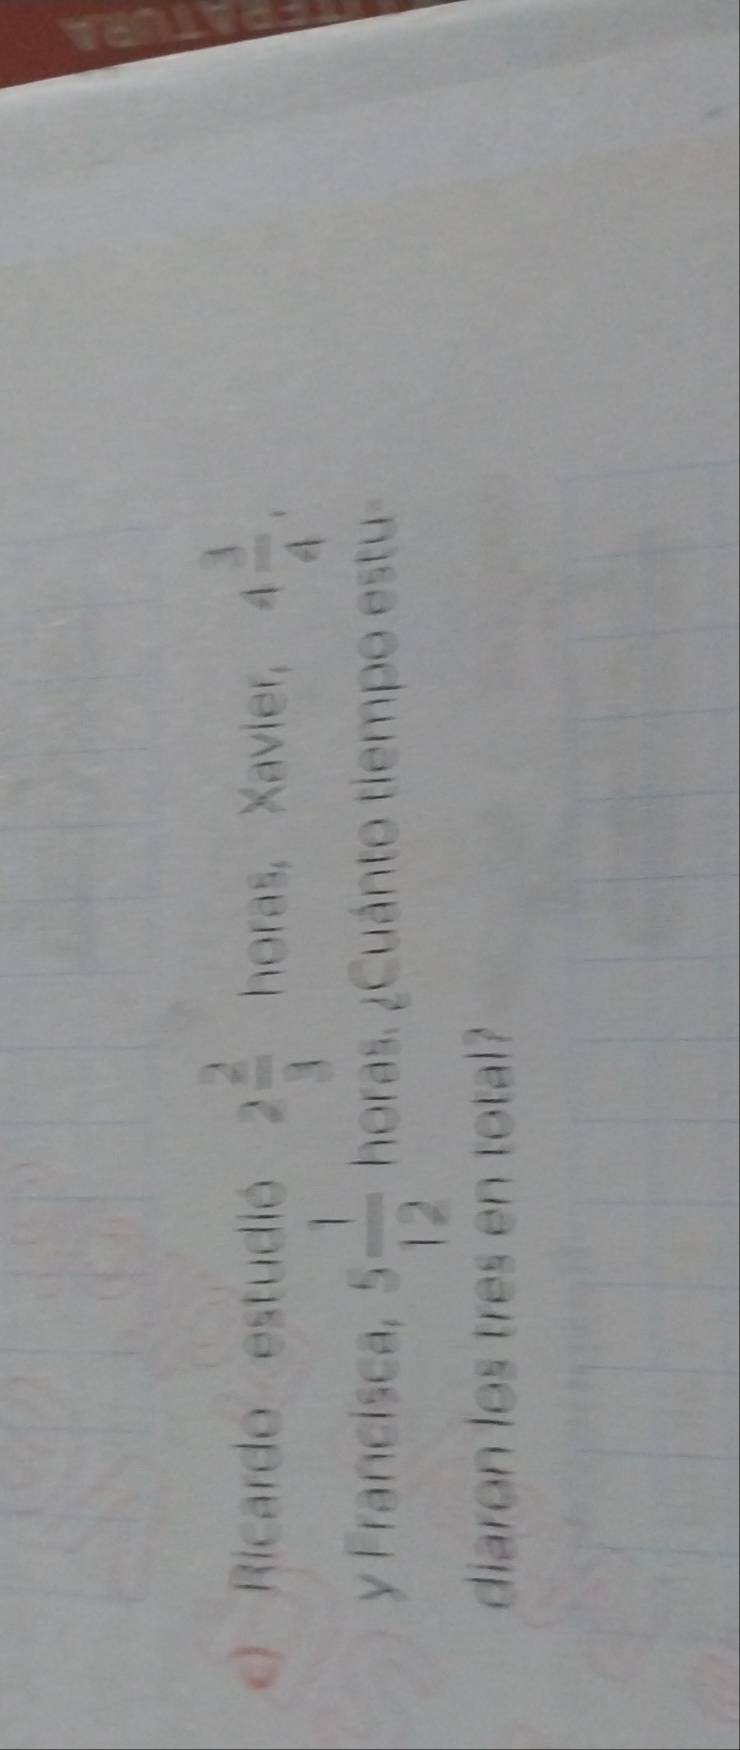 LITERATURA
c) Ricardo estudió 2 2/3 horas, Xavier, 4 3/4,
y Francisca, 5 1/12 horas. ¿Cuánto tiempo estu-
diaron los tres en total?